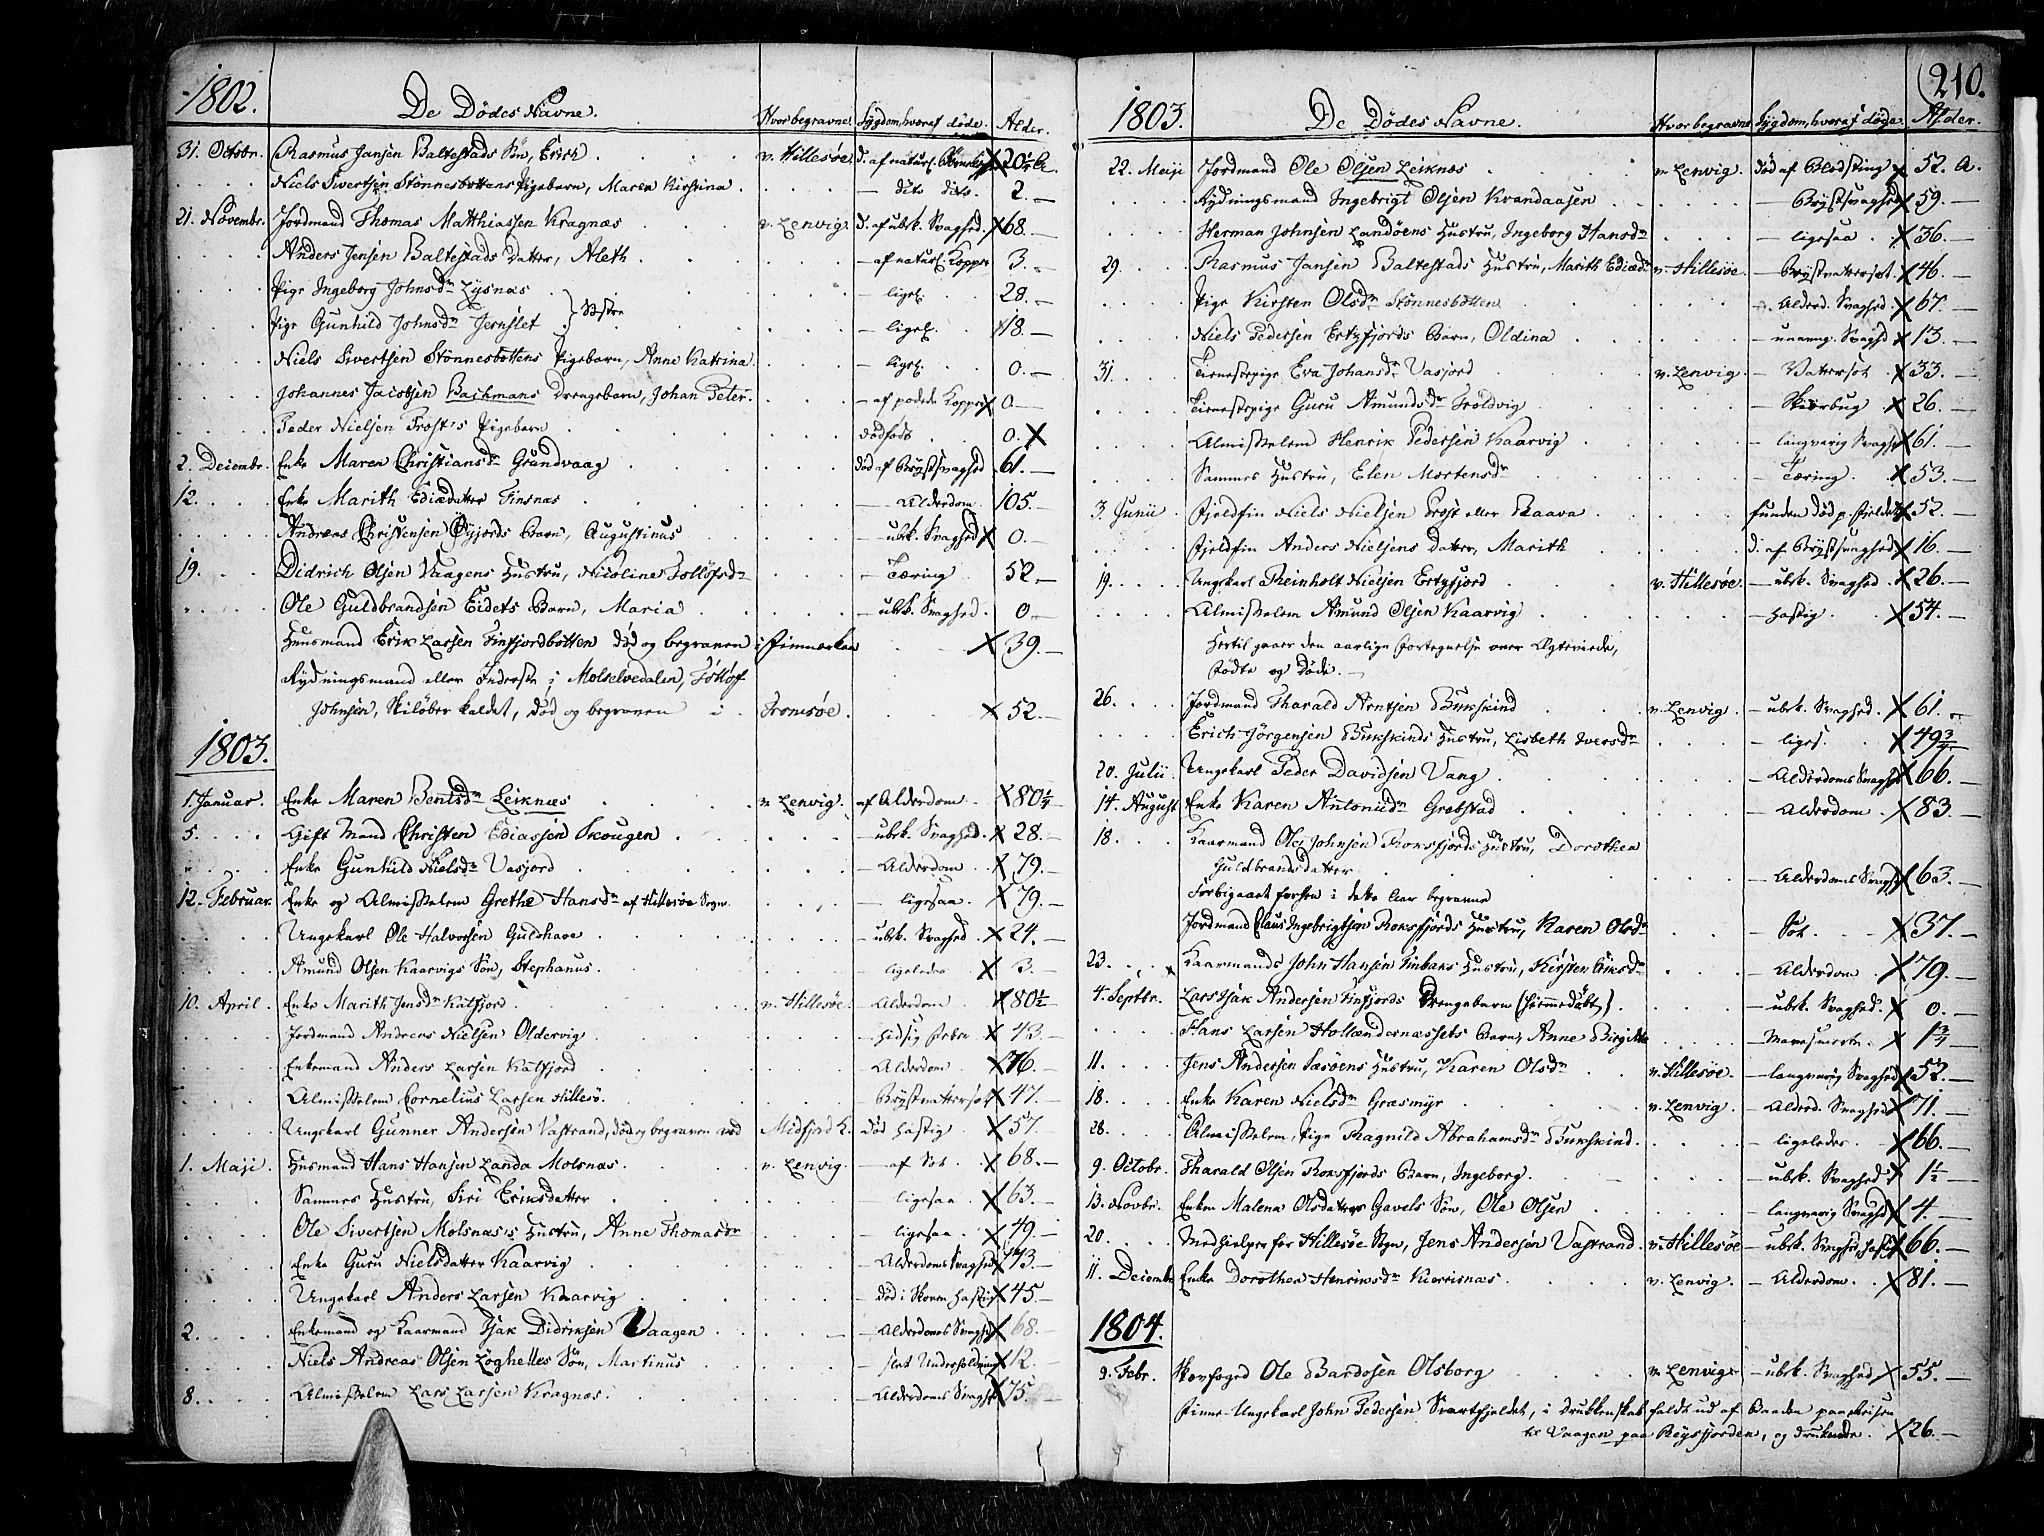 1802.
De Dödes Navne.
Hvor begravne. Sygdom, hvoraf döde. Alder.
31. Octobr. Rasmus Jansen Baltestads Sön, Erich v. Hillesöe. d. af naturl. 20½ A.
Niels Sivertsen Stönnesbottens Pigebarn, Maren Kirstina. – dito dito. 2. –
21. Novembr. Jordmand Thomas Matthiassen Kragnæs v. Lenvig. d. af ubek. Svaghed. X 68. –
Anders Jensen Baltestads Datter, Aleth. – af naturl. Kopper 3. –
Pige Ingeborg Johnsdr Lysnæs – ligel. 28. –
Pige Gunhild Johnsdr Jernslet } Söstre – ligel. 18. –
Niels Sivertsen Stönnesbottens Pigebarn, Anne Katrina. – ligel. 0. –
Johannes Jacobsen Bachmans Drengebarn, Johan Peter. – af podede Kopper X 0. –
Peder Nielsen Frost's Pigebarn dödfödt 0. X
2. Decembr. Enke Maren Christiansdr Grundvaag död af Brystsvaghed 61. –
12. Enke Marith Ediædatter Finsnæs – Alderdom. 105. –
Andreas Christensen Öyjords Barn, Augustinus – ubek. Svaghed X 0. –
19. Didrich Olsen Vaagens Hustru, Nicoline Tollöfsdr – Tæring 52 –
Ole Guldbrandsen Eidets Barn, Maria – ubek. Svaghed. 0. –
Huusmand Erik Larsen Finfjordbotten död og begraven i Finmarken X 39. –
Rydningsmand eller Inderste i Molselvedalen, Tollöf
Johnsen, Skilöber kaldet, död og begraven i Tromsöe. X 52. –
1803.
1. Januar. Enke Maren Bentsdr Leiknæs v. Lenvig. af Alderdom. X 80¼
5. Gift Mand Christen Ediassen Skougen – ubek. Svaghed. X 28. –
Enke Gunhild Nielsdr Vasjord – Alderdom X 79. –
12. Februar. Enke og Almisselem Grethe Hansdr af Hillesöe Sogn. – ligesaa. X 79. –
Ungekarl Ole Halvorsen Guldhave – ubek. Svaghed X 24. –
Amund Olsen Kaarvigs Sön, Stephanus. ligeledes X 3. –
10. April. Enke Marith Jensdr Katfjord. v. Hillesöe. – Alderdom X 80½ –
Jordmand Andreas Nielsen Oldervig. – Hidsig Feber X 43. –
Enkemand Anders Larsen Katfjord Alderdom. X 76. –
Almisselem Cornelius Larsen Hillesö. Brystvattersot X 47. –
Ungekarl Gunner Andersen Vastrand, död og begraven ved Midfjord K. död hastig X 57. –
1. Maji. Husmand Hans Hansen Landa Molsnæs. v. Lenvig. – af Sot. X 68. –
Sammes Hustru, Siri Eriksdatter ligesaa X 63. –
Ole Sivertsen Molsnæs's Hustru, Anne Thomasdr ligesaa. X 49. –
Enke Guru Nielsdatter Kaarvig – Alderdoms Svaghed X 73. –
Ungekarl Anders Larsen Kaarvig död i Skoven hastig X 45. –
2. Enkemand og Kaarmand Isak Didriksen Vaagen – Alderdoms Svaghed X 68. –
Niels Andreas Olsen Löghelles Sön, Martinus slet Underholdning X 12. –
8. Almisselem Lars Larsen Kragnæs. Alderdoms Svaghed X 75. –
1803.
De Dödes Navne.
Hvor begravne Sygdom, hvoraf döde. Alder.
(210.
22. Maji Jordmand Ole Olsen Leiknæs v. Lenvig. död af Blodsting X 52. A.
Rydningsmand Ingebrigt Olsen Kvandaasen – Brystsvaghed X 59. –
Herman Johnsen Landöens Hustru, Ingeborg Hansdr – ligesaa. X 36. –
29. Rasmus Jansen Baltestads Hustru, Marith Ediædr v. Hillesöe. – Brystvattersot X 46. –
Pige Kirsten Olsdr Stönnesbotten – Alderd. Svaghed X 67. –
Niels Pedersen Ertzfjords Barn, Oldina – Svaghd X 13. –
31. Tienestepige Eva Johansdr Vasjord v. Lenvig. – Vattersot X 33. –
Tienestepige Guru Amundsdr Troldvig – Skiörbug X 26. –
Almisselem Henrik Pedersen Kaarvig – langvarig Svaghed X 61. –
Sammes Hustru, Elen Mortensdr – Tæring X 53. –
3. Junii Fjeldfin Niels Nielsen Frost eller Raava funden död p. Fjeldet X 52. –
Fjeldfin Anders Nielsens Datter, Marith d. af Brystsvaghed X 16. –
19. Ungekarl Reinholt Nielsen Ertzfjord v. Hillesöe. – ubek. Svaghed. X 26. –
Almisselem Amund Olsen Kaarvig – hastig. X 54. –
Hertil gaaer den aarlige Fortegnelse over Ægteviede,
Födte og Döde. –
26. Jordmand Tharald Arntsen Bukskind v. Lenvig. – ubek. Svaghed. X 61. –
Erich Jörgensen Bukskinds Hustru, Lisbeth Iversdr – liges. X 49¾ –
20. Julii. Ungekarl Peder Davidsen Vang. – Alderdoms Svaghed X 66. –
14. August Enke Karen Antoniidr Grebstad – Alderdom. X 83. –
18. Kaarmand Ole Johnsen Roxfjords Hustru, Dorothea
Guldbrandsdatter – Alderdoms Svaghed X 63. –
Forbigaaet forhen i dette Aar begravne
Jordmand Claus Ingebrigtsen Roxfjords Hustru, Karen Olsdr – Sot. X 37. –
23. Kaarmands John Hansen Finbaks Hustru, Kirsten Eriksdr – Alderdom X 79. –
4. Septbr. Lars Isak Andersen Finfjords Drengebarn (hiemmedöbt). – ubek. Svaghed. X 0. –
Hans Larsen Hollændernæssets Barn, Anne Birgitte – X 1¾
11. Jens Andersen Sæsöens Hustru, Karen Olsdr v. Hillesöe. – langvarig Svaghed X 52. –
18. Enke Karen Nielsdr Græsmyr v. Lenvig. – Alderd. Svaghed X 71. –
28. Almisselem, Pige Ragnild Abrahamsdr Bukskind. – ligeledes. X 66. –
9. Octobr. Tharald Olsen Roxfjords Barn, Ingeborg. – ubek. Svaghed X 1½ –
13. Novbr. Enken Malena Olsdatters Gavels Sön, Ole Olsen – langvarig Svaghed X 4. –
20. Medhielper for Hillesöe Sogn, Jens Andersen Vastrand. v. Hillesöe – ubek. Svaghed, hastig X 66. –
11. Decembr. Enke Dorothea Henriksdr Kiærisnæs. v. Lenvig. – Alderdom. X 81. –
1804.
9. Febr. Skovfoged Ole Bardosen Olsborg v. Lenvig – ubek. Svaghed X 55. –
Finne-Ungekarl John Pedersen Svartfjeldet, i Drukkenskab faldt ud af Baaden paa Reisen
til Vaagen paa Reysfjorden, og druknede. X 26. –